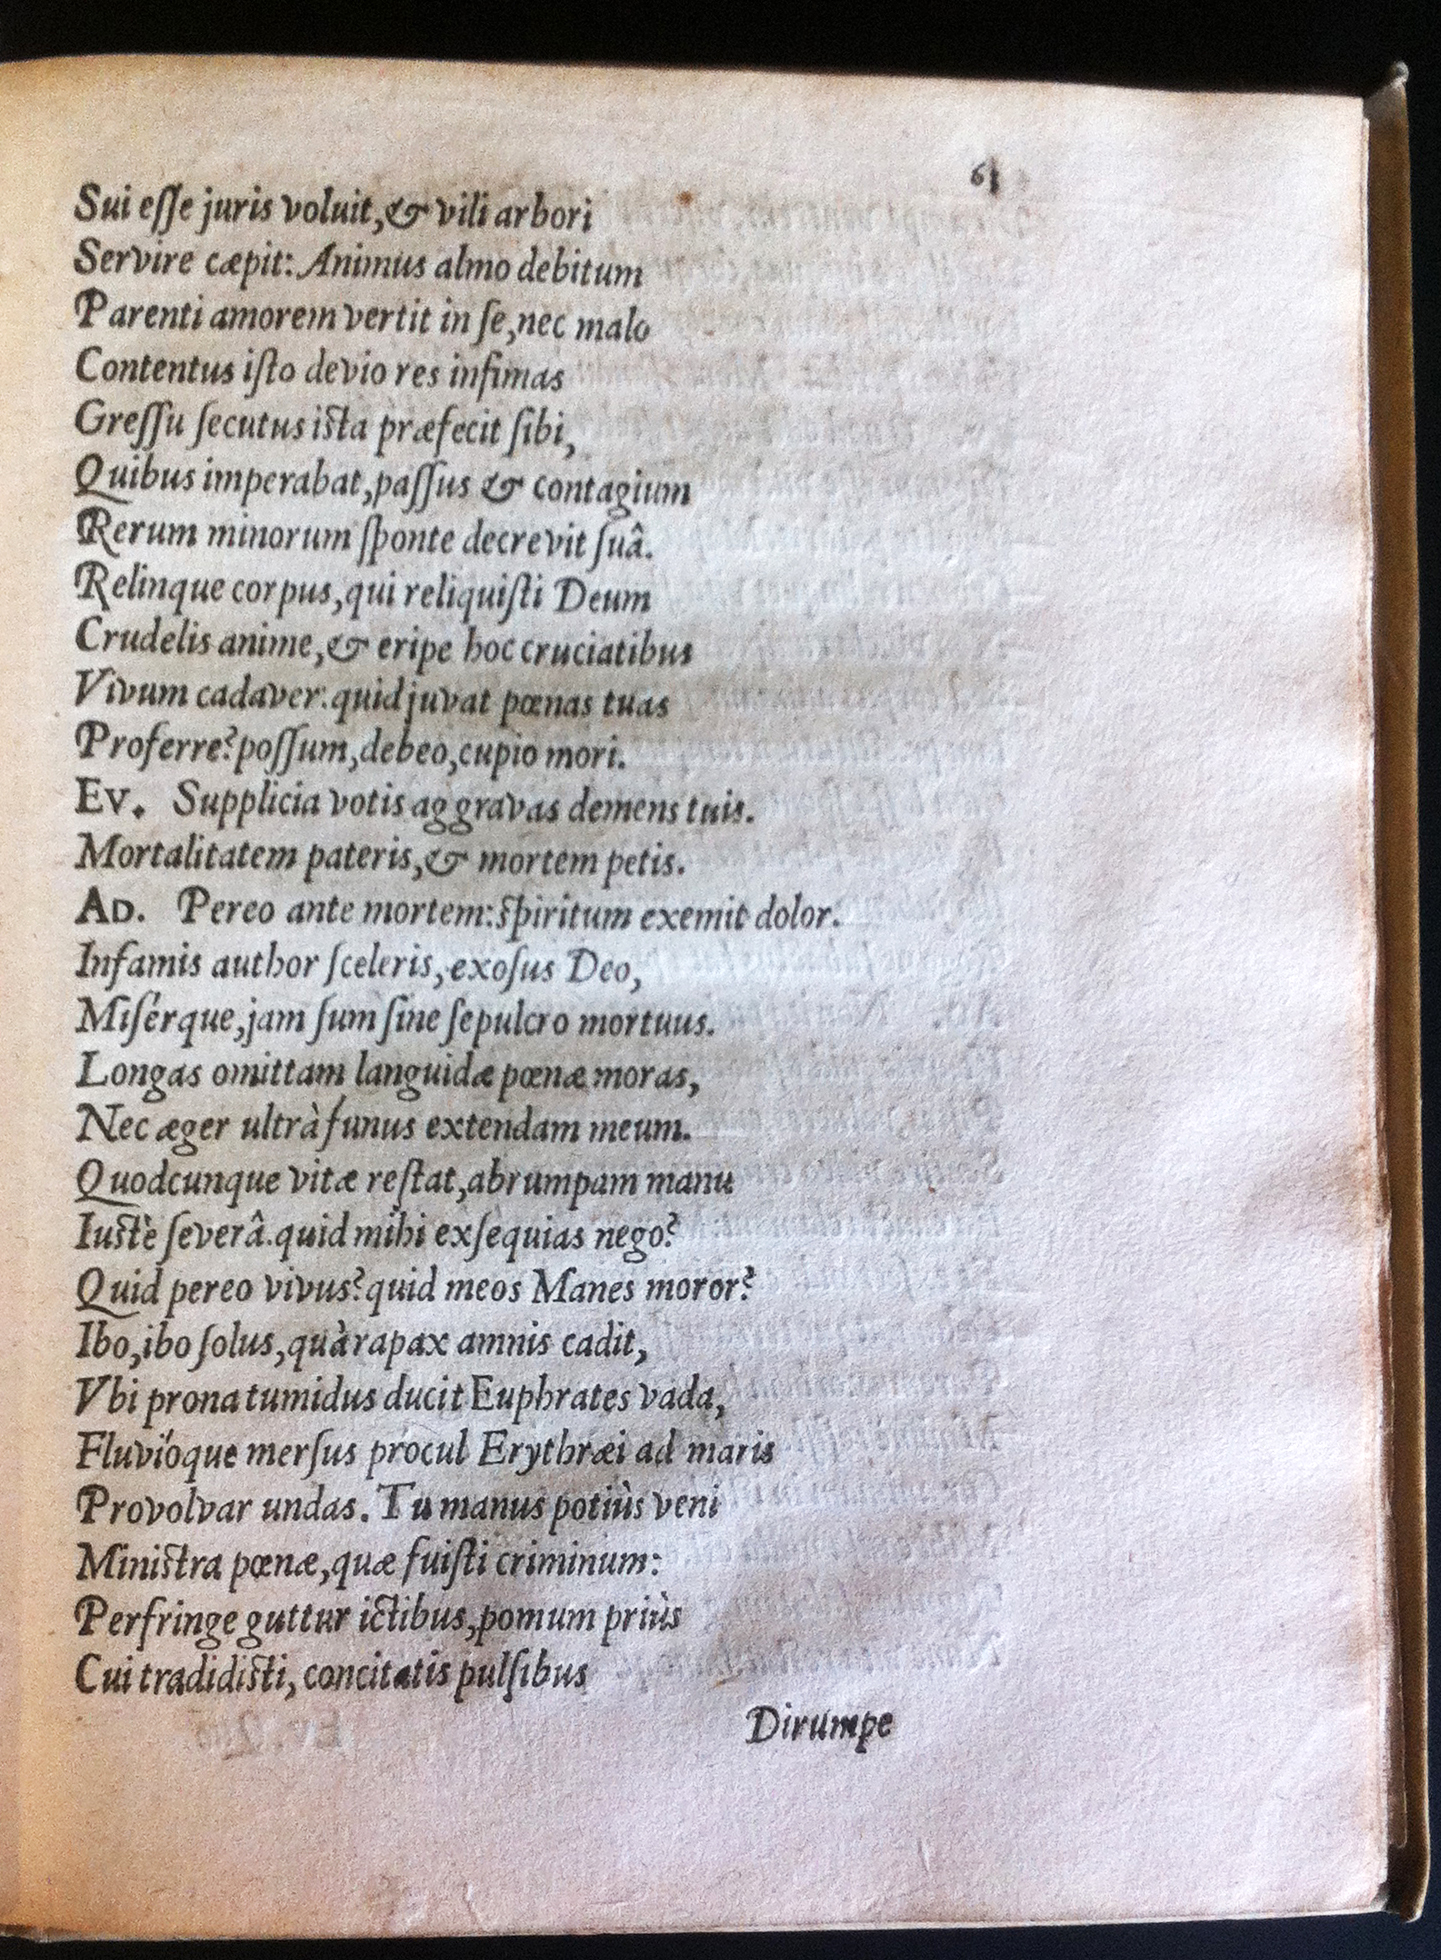 61
Sui eſſe juris voluit,& vili arbori
Servire cæpit: Animus almo debitum
Parenti amorem vertit in ſe,nec malo
Contentus iſto devio res infimas
Greſſu ſecutus iſta præfecit ſibi,
Quibus imperabat,paſſus & contagium
Rerum minorum ſponte decrevit ſuâ.
Relinque corpus,qui reliquiſti Deum
Crudelis anime,& eripe hoc cruciatibus
Vivum cadaver.quid juvat pœnas tuas
Proferre?poſſum,debeo,cupio mori.
EV. Supplicia votis aggravas demens tuis.
Mortalitatem pateris,& mortem petis.
AD. Pereo ante mortem:ſpiritum exemit dolor.
Infamis author ſceleris,exoſus Deo,
Miſérque,jam ſum ſine ſepulcro mortuus.
Longas omittam languidæ pœnæ moras,
Nec æger ultrà funus extendam meum.
Quodcunque vitæ reſtat,abrumpam manu
Iuſtè ſeverâ.quid mihi exſequias nego?
Quid pereo vivus?quid meos Manes moror?
Ibo,ibo ſolus,quà rapax amnis cadit,
Vbi prona tumidus ducit Euphrates vada,
Fluvióque merſus procul Erythræi ad maris
Provolvar undas. Tu manus potiùs veni
Miniſtra pœnæ,quæ fuiſti criminum:
Perfringe guttur ictibus,pomum priùs
Cui tradidiſti, concitatis pulſibus
Dirumpe